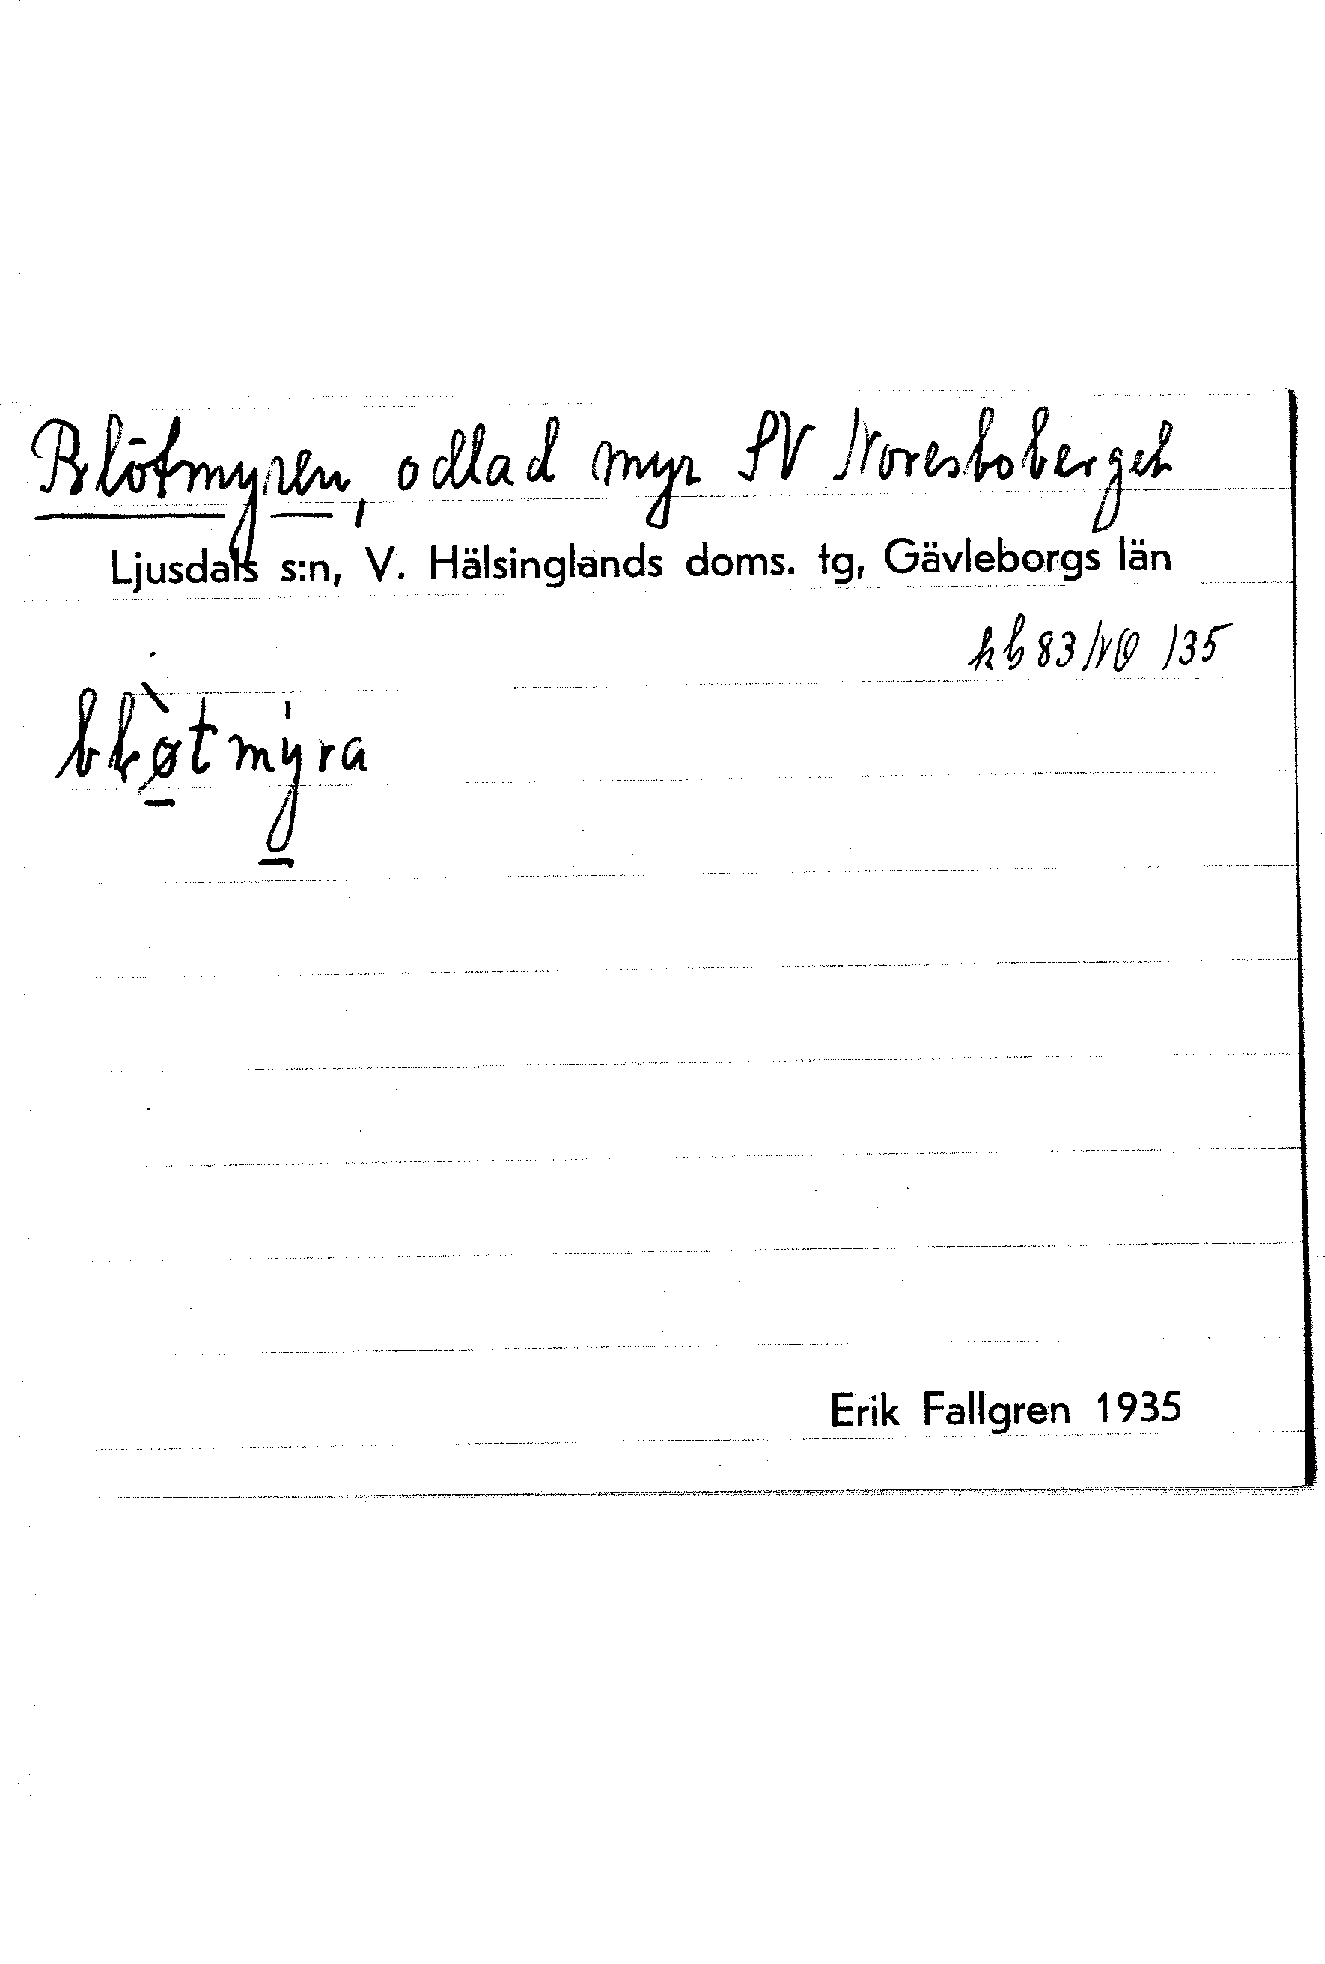 Blötmyren, odlad myr SV Noresboberget
Ljusdals s:n, V. Hälsinglands doms. tg, Gävleborgs län
kb 83 NO 135
bløtmyra
Erik Fallgren 1935